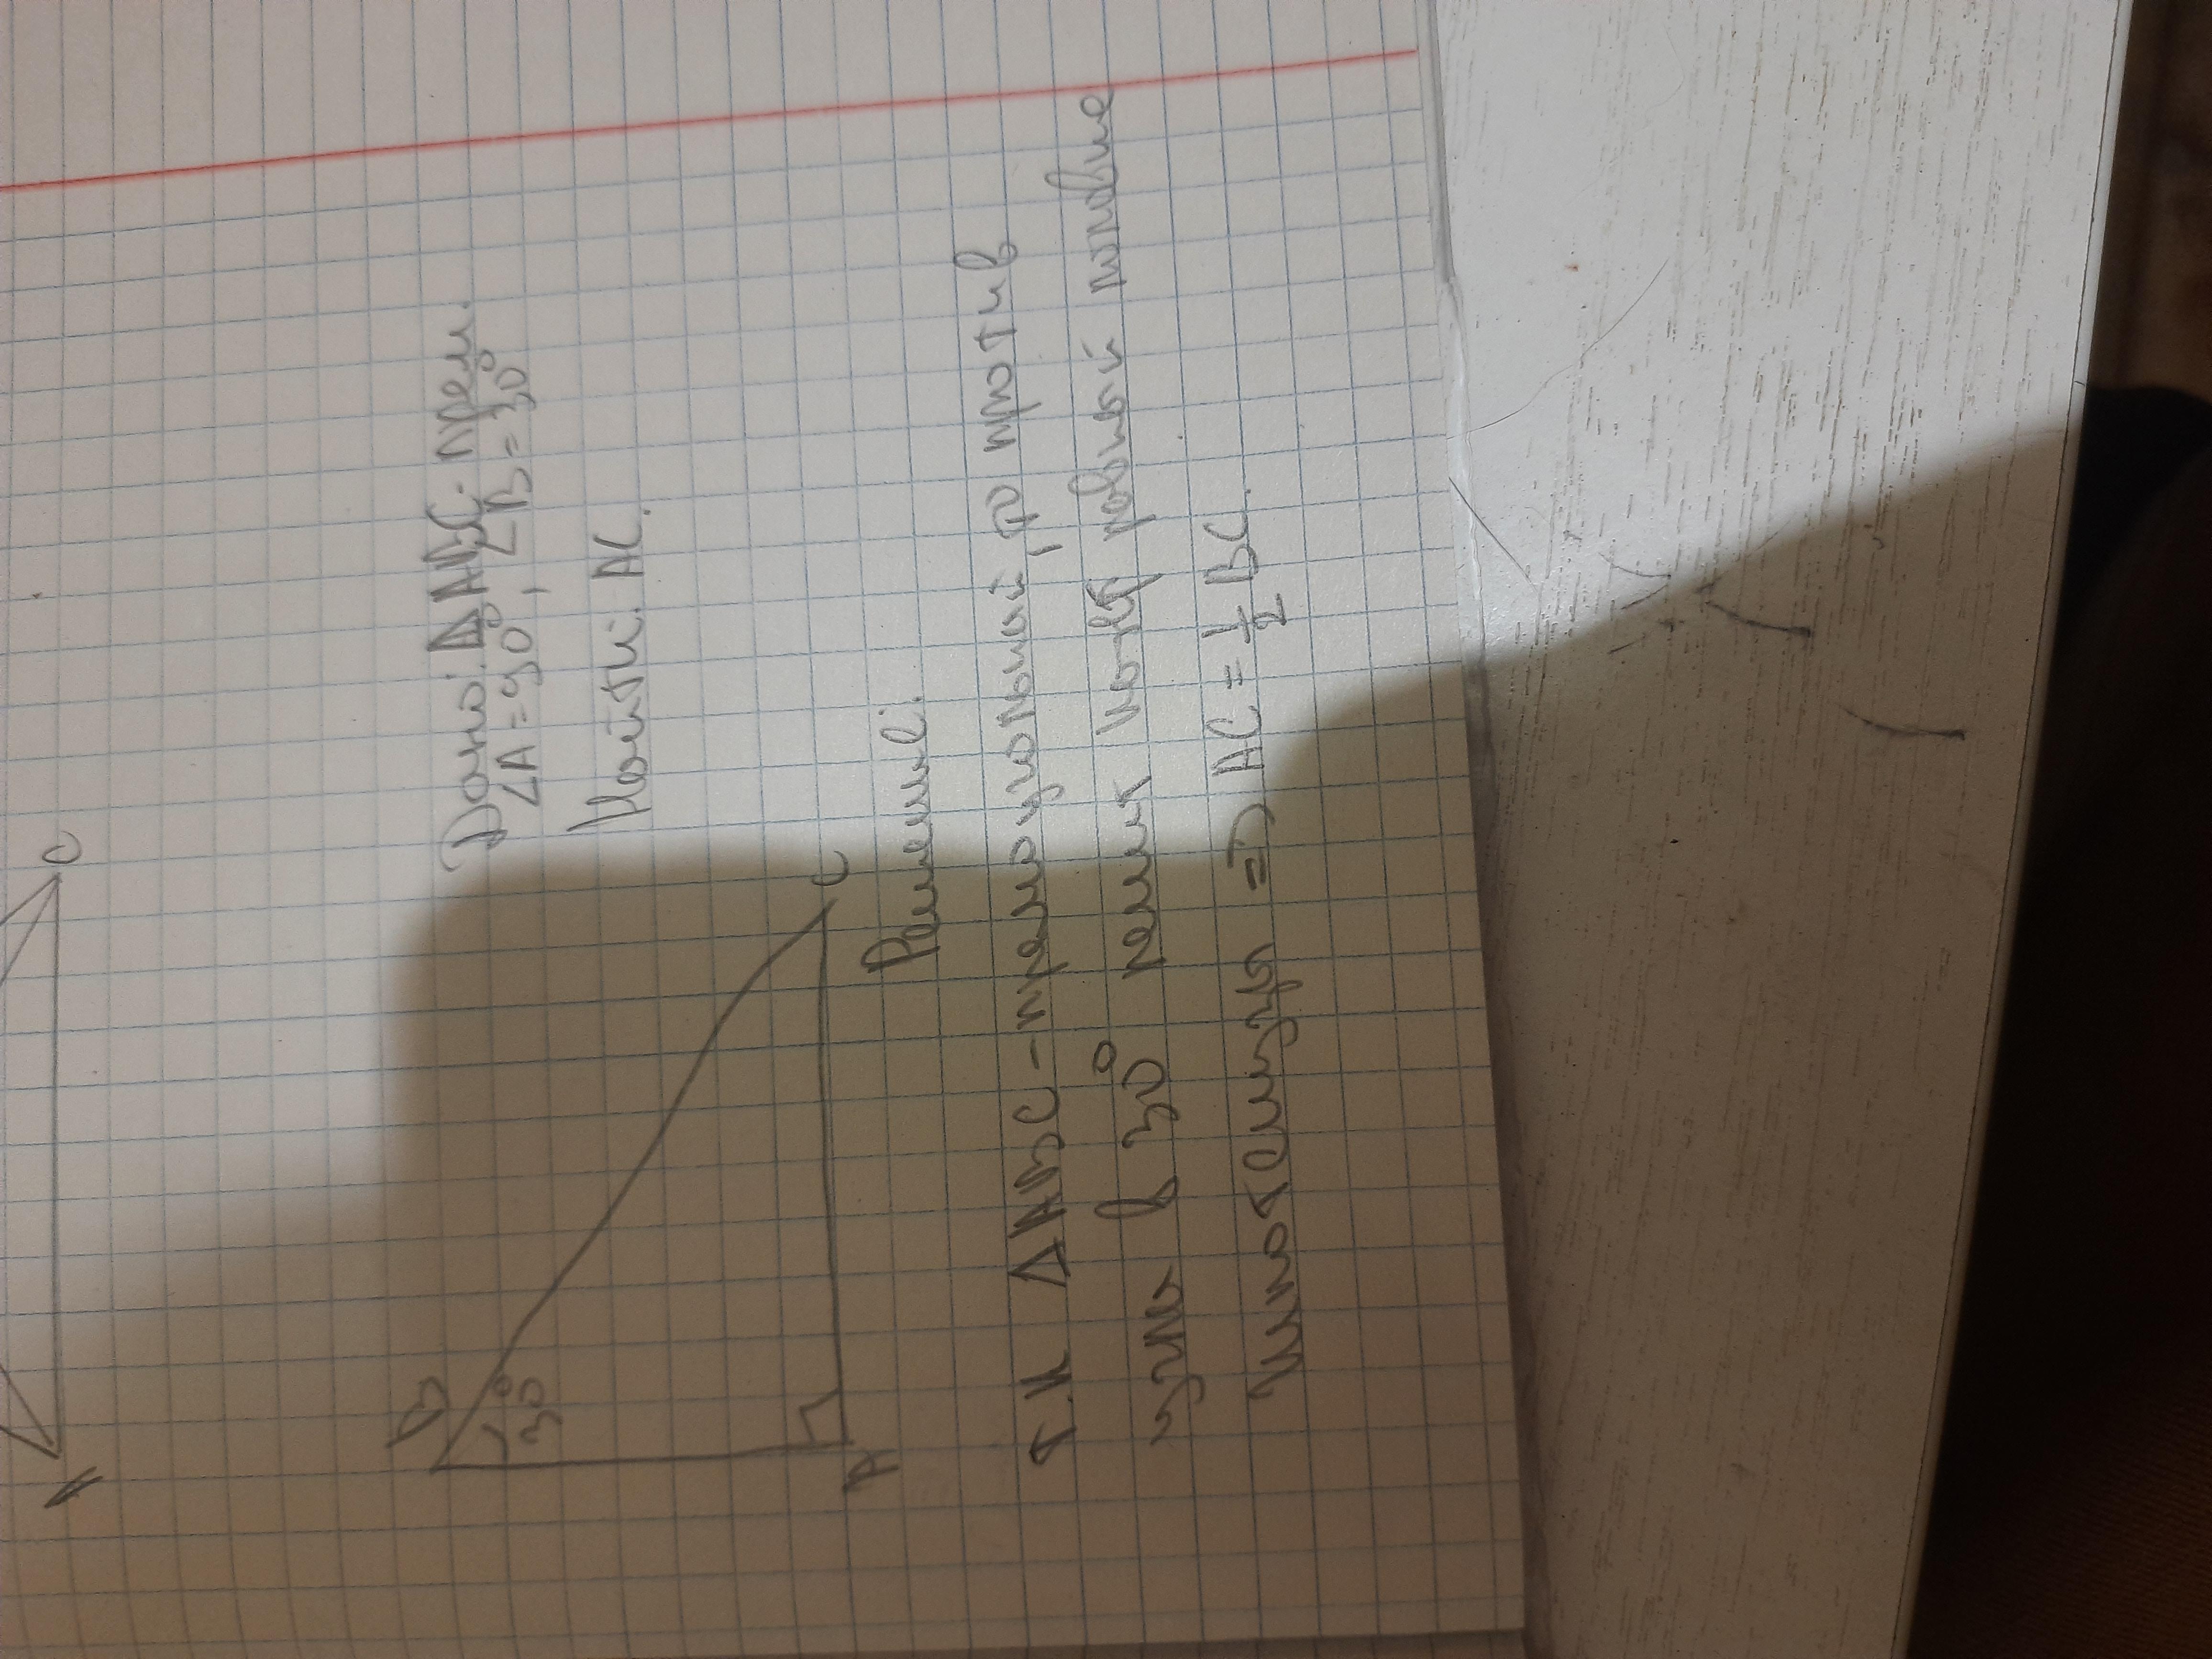 C
A
Дано: ΔABC-прям.
∠A=90°, ∠B=30°
Найти: AC.
B
30°
A
C
Решení:
т.к ΔABC-прямоугольный, то против
угла в 30° лежит катет равный половине
гипотенузы => AC = 1/2 BC.